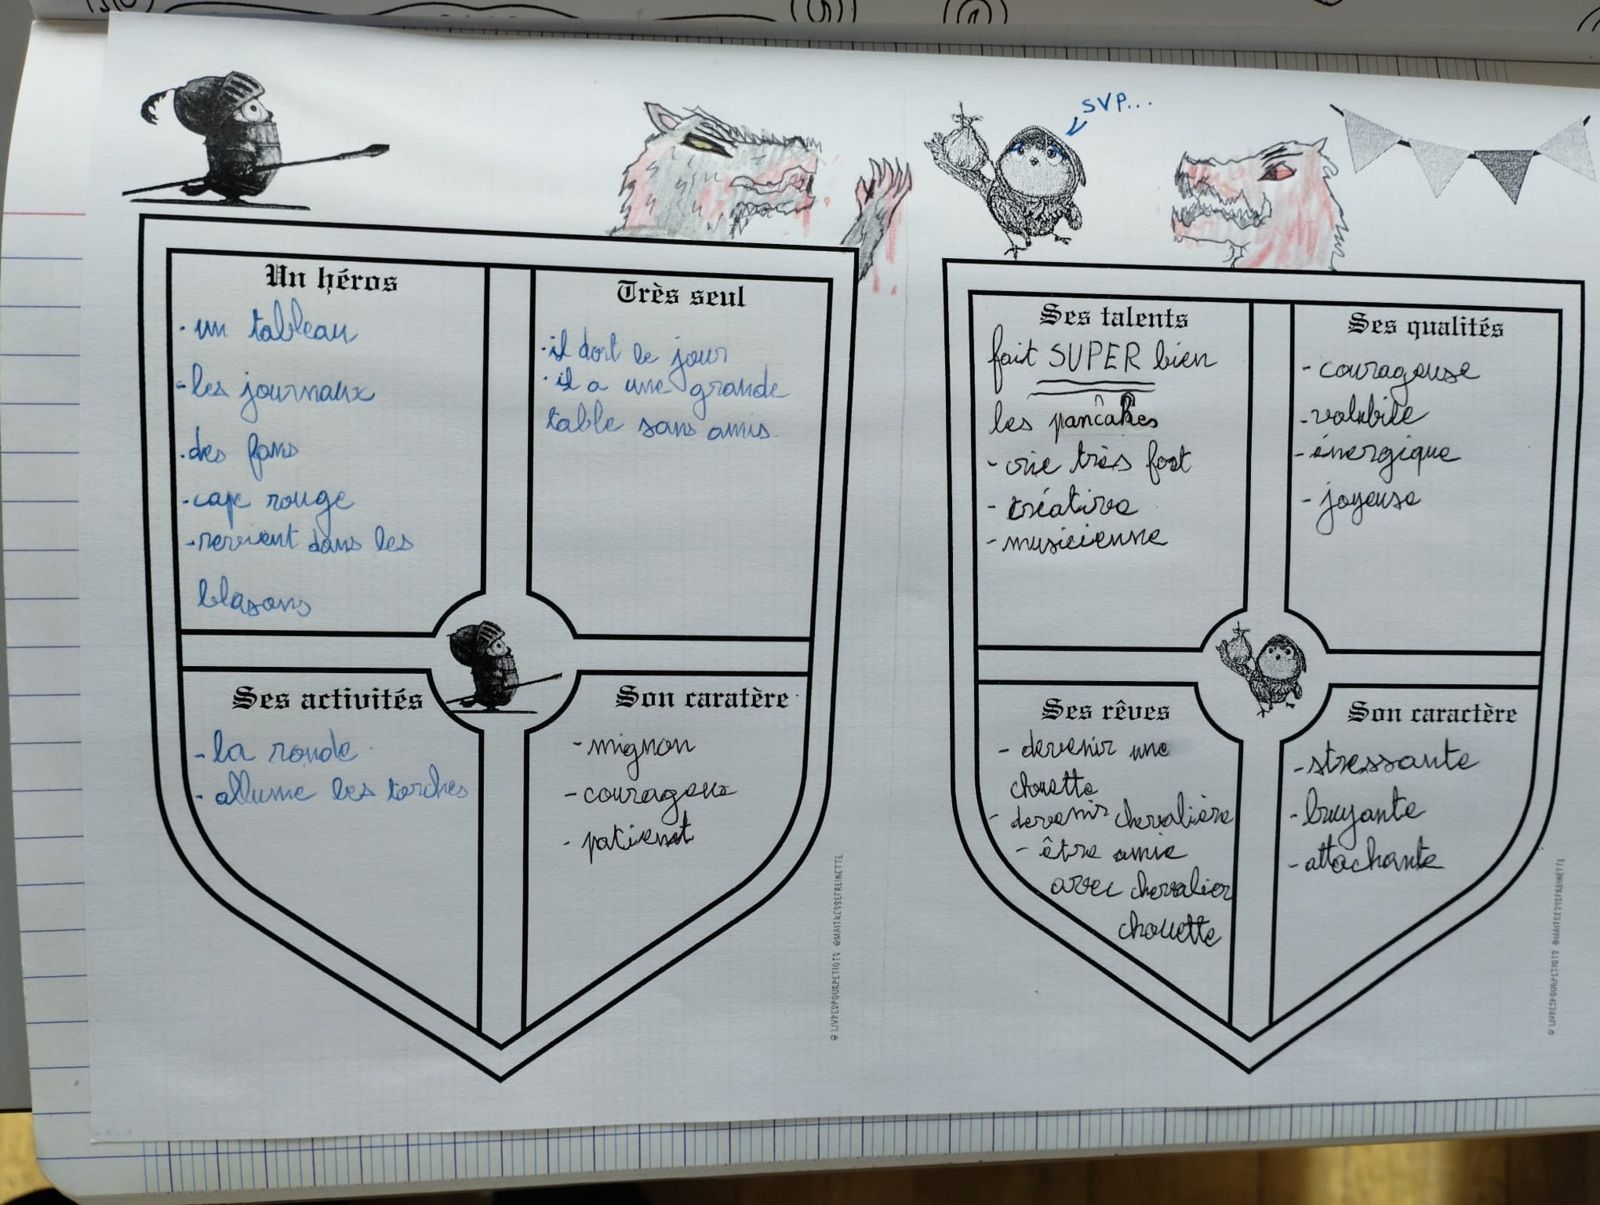 SVP...
Un héros
· un tableau
- les journaux
· des fans
- cape rouge
- revient dans les
blasons
Très seul
· il dort le jour
· il a une grande
table sans amis.
Ses activités
- la ronde
- allume les torches
Son caratère
- mignon
- courageux
- patient
@LIVRESPOURPETIOTS @MAITRESSEFREINETTE
Ses talents
fait SUPER bien
les pancakes
- crie très fort
- créative
- musicienne
Ses qualités
- courageuse
- volubile
- énergique
- joyeuse
Ses rêves
- devenir une
chouette
- devenir chevalière
- être amie
avec chevalier
chouette
Son caractère
- stressante
- bruyante
- attachante
@LIVRESPOURPETIOTS @MAITRESSEFREINETTE